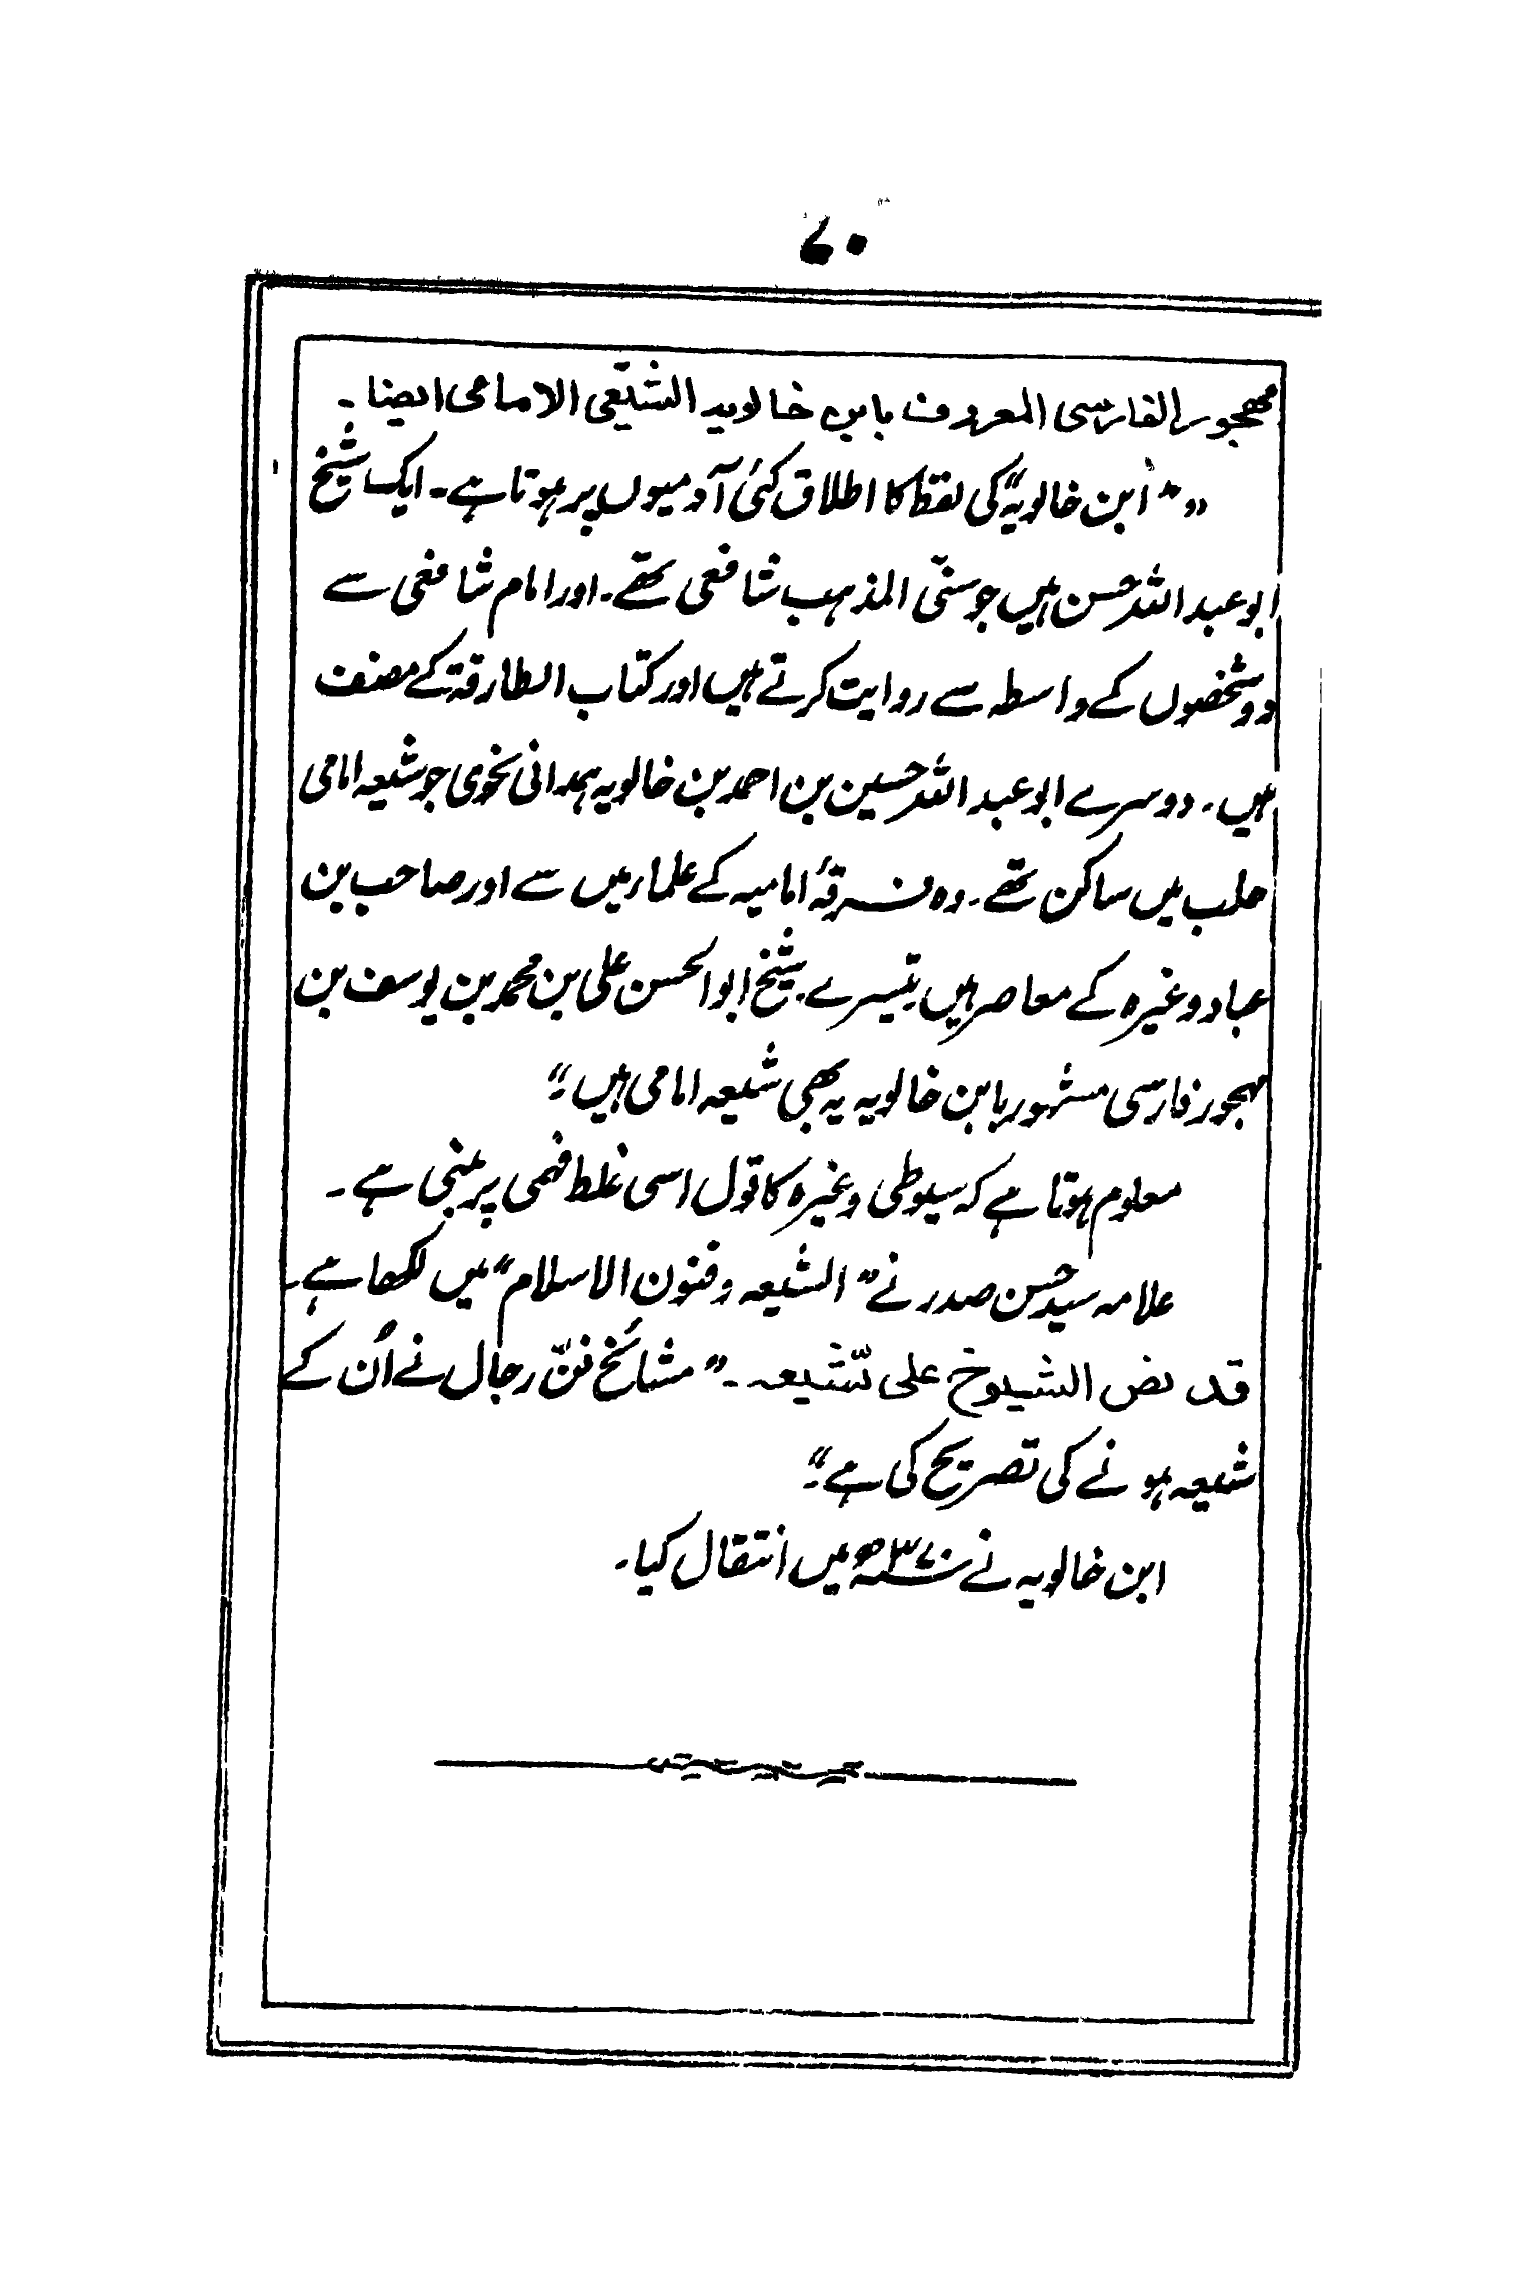 ۷۰
مهجور الفارسی المعروف بابن خالویہ الشیعی الامامی ایضا۔
”” ابن خالویہ“ کی لفظ کا اطلاق کئی آدمیوں پر ہوتا ہے۔ ایک شیخ
ابو عبد اللہ حسن ہیں جو سنّی المذہب شافعی تھے۔ اور امام شافعی سے
دو شخصوں کے واسطہ سے روایت کرتے ہیں اور کتاب الطارقۃ کے مصنف
ہیں۔ دوسرے ابو عبد اللہ حسین بن احمد بن خالویہ ہمدانی نحوی جو شیعہ امامی
حلب میں ساکن تھے۔ وہ فرقۂ امامیہ کے علماء میں سے اور صاحب بن
عباد وغیرہ کے معاصر ہیں تیسرے شیخ ابو الحسن علی بن محمد بن یوسف بن
مہجور فارسی مشہور بابن خالویہ یہ بھی شیعہ امامی ہیں۔“
معلوم ہوتا ہے کہ سیوطی وغیرہ کا قول اسی غلط فہمی پر مبنی ہے۔
علامہ سید حسن صدر نے ”الشیعہ و فنون الاسلام“ میں لکھا ہے۔
قد نص الشیوخ علی تشیعہ۔ ” مشائخ فنّ رجال نے اُن کے
شیعہ ہونے کی تصریح کی ہے۔“
ابن خالویہ نے ۳۷۰ھ میں انتقال کیا۔